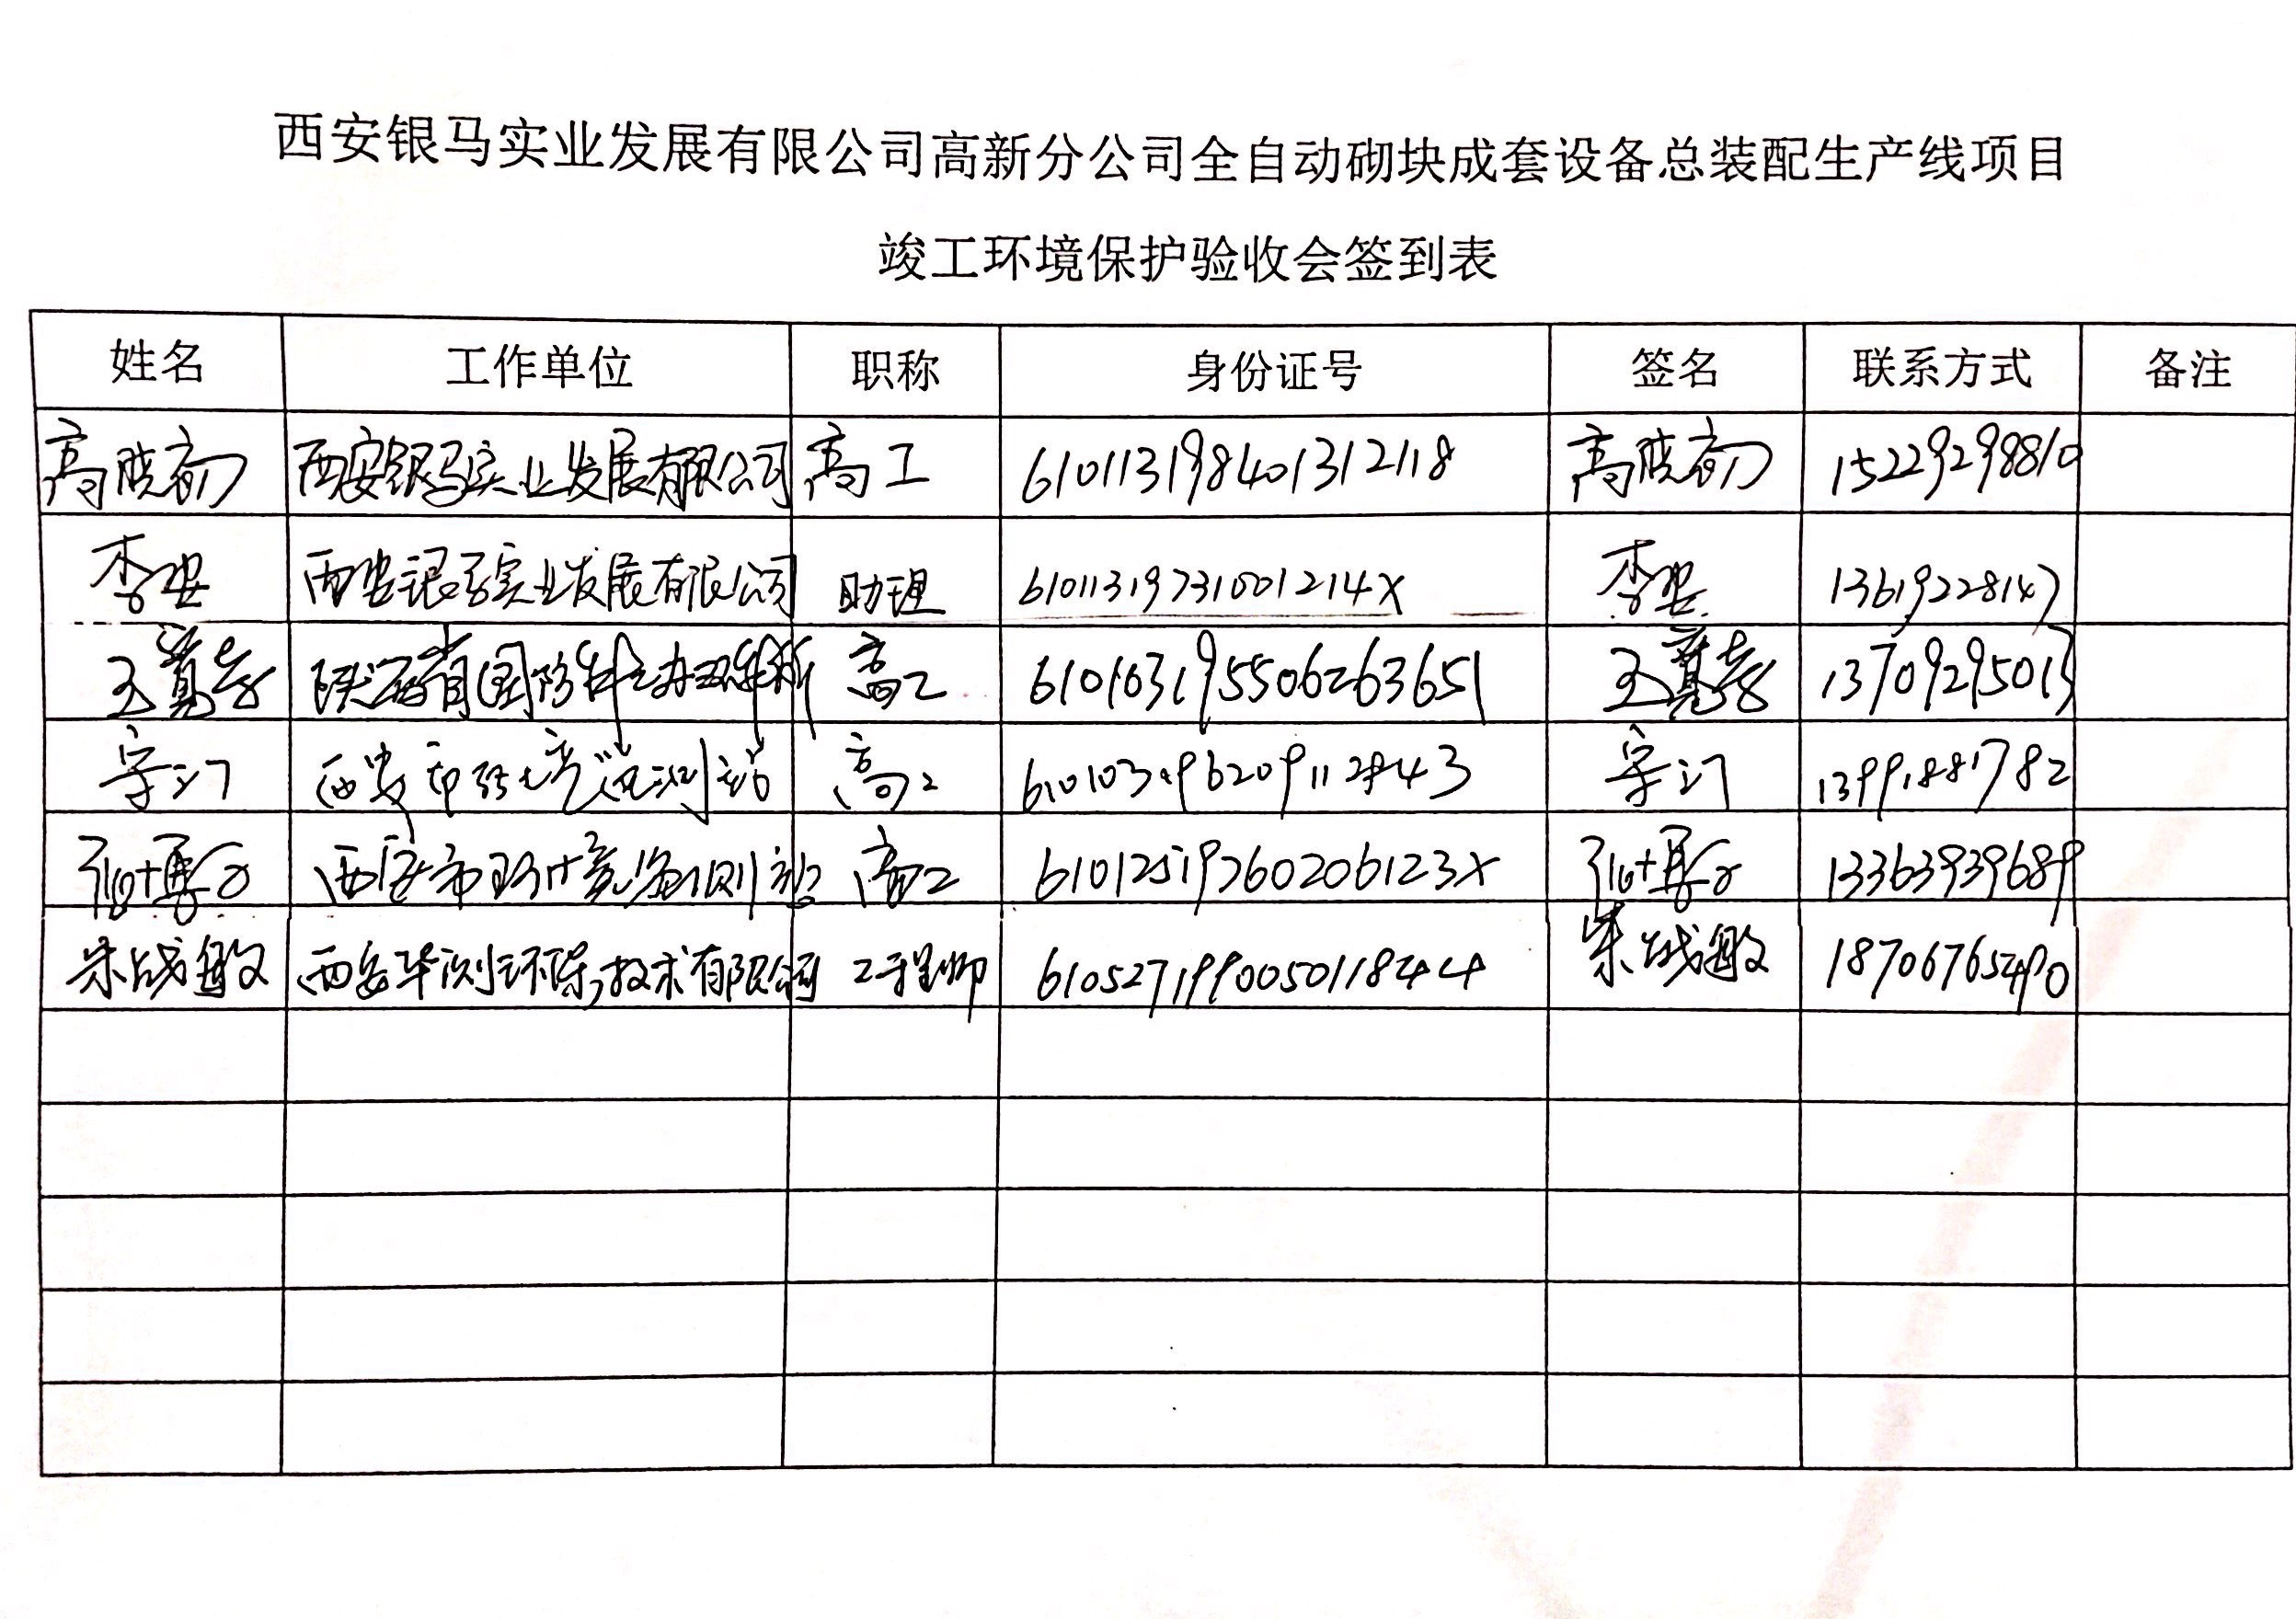 西安银马实业发展有限公司高新分公司全自动砌块成套设备总装配生产线项目
竣工环境保护验收会签到表
姓名 工作单位 职称 身份证号 签名 联系方式 备注
高晓初 西安银马实业发展有限公司 高工 610113198401312118 高晓初 15229298810
李安 西安银马实业发展有限公司 助理 61011319731001214X 李安 13619228147
王 陕西省国防科工办 高工 610103195506263651 王 13709295013
宁江 西安市环境监测站 高工 宁江 13991881782
张博 西安市环境监测站 高工 61012519760206123X 张博 13363939689
朱战敏 西安华测环保技术有限公司 工程师 610527199005011844 朱战敏 18706765490